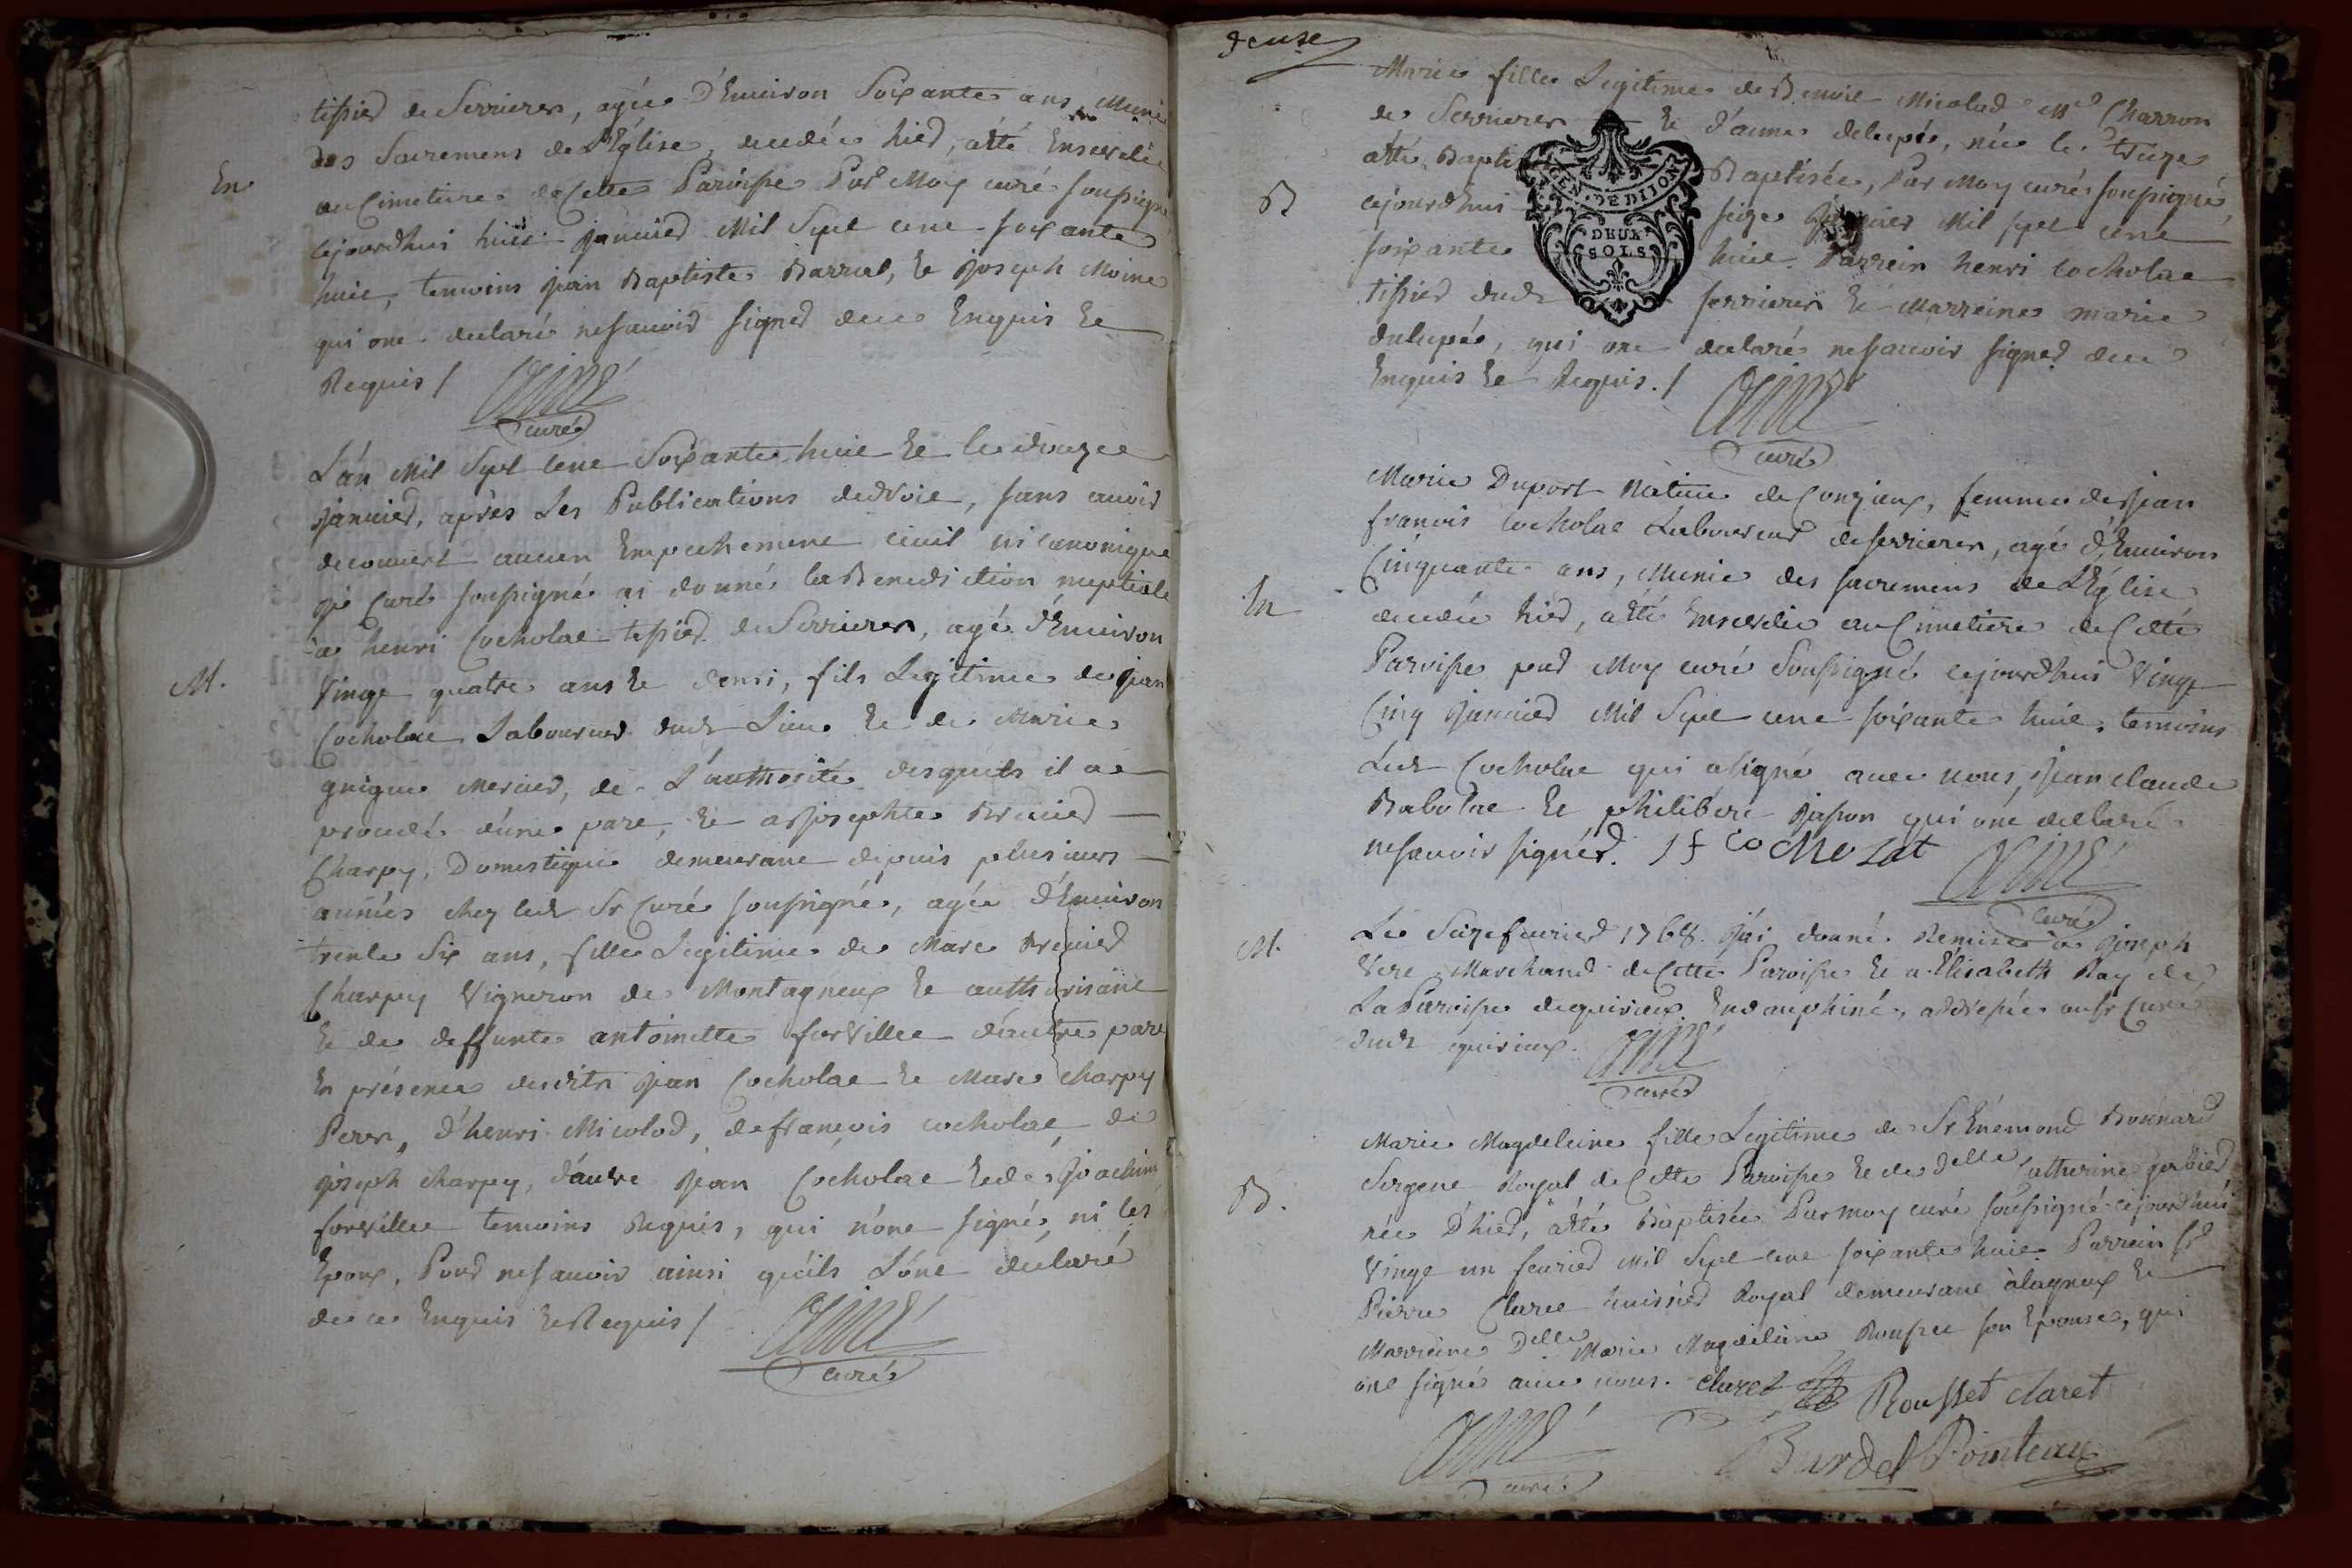 tissier de Serrieres, agée d'Environ Soixante ans, Munie
des Sacremens de L'Église, decedée hier, a été Ensevelie
En
au Cimetiere de Cette Paroisse Par Moy curé soussigné
cejourdhui huit janvier Mil Sept cent soixante
huit, temoins jean Baptiste Barral, et joseph Moine
qui ont declaré ne savoir signer de ce Enquis et
Requis /
curé
L'an Mil Sept Cent Soixante huit et le douze
janvier, après Les Publications de droit, sans avoir
decouvert aucun Empechement civil ni canonique
je Curé soussigné ai donné la Benediction nuptiale
a henri Cocholat tissier de Serrieres, agé d'Environ
M.
Vingt quatre ans et demi, fils Legitime de jean
Cocholat Laboureur dudt Lieu et de Marie
guigue Mercier, de L'authorité desquels il a
procedé d'une part, et a josephte Brevied
Charpy, Domestique demeurant depuis plusieurs
années chez ledt Sr Curé soussigné, agée d'Environ
trente Six ans, fille Legitime de Marc Brevied
Charpy Vigneron de Montagneux et authorisant
et de deffunte antoinette forvillee d'autre part
En présence desdits jean Cocholat et Marc Charpy
Peres, d'henri Micolod, de françois cocholat, de
joseph charpy, d'autre jean Cocholat et de joachim
forvillee temoins Requis, qui n'ont signé, ni les
Epoux, Pour ne savoir ainsi qu'ils L'ont déclaré
de ce Enquis et Requis /
curé
deuxe
Marie fille Legitime de Benoit Micolod Me Charron
de Serrieres et d'anne delupée, née le treize
a été Bapti Baptisée, Par Moy curé soussigné,
GEN. DE DIJON
DEUX
SOLS
B
cejourdhui seize janvier Mil sept cent
soixante huit. Parrein henri cocholat
tissier dudt serrieres et Marreine marie
delupée, qui ont declaré ne savoir signer de ce
Enquis et Requis. /
curé
Marie Duport Native de Conzieux, femme de jean
francois Cocholat Laboureur de serrieres, agé d'Environ
Cinquante ans, Munie des sacremens de L'Église
En
decedée hier, a été Ensevelie au Cimetiere de Cette
Paroisse par Moy curé Soussigné cejourdhui Vingt
Cinq janvier Mil Sept cent soixante huit, temoins
Ledt Cocholat qui a signé avec nous, jean claude
Babolat et philibert jason qui ont declaré
ne savoir signer. J f coChoLat
curé
M.
Le Seize fevrier 1768. j'ai donné Remise a joseph
Vere Marchand de Cette Paroisse et a Elisabeth Ray de
La Paroisse de quirieux En dauphiné, addressée au Sr Curé
dudt quirieux.
curé
Marie Magdeleine fille Legitime de Sr Enemond Bonnard
Sergent Royal de Cette Paroisse et de delle Catherine gallied
B.
née D'hier, a été Baptisée Par moy curé soussigné cejourdhui
Vingt un fevrier Mil Sept cent soixante huit. Parrein Sr
Pierre Claret huissier Royal demeurant à lagneux et
Marreine Delle Marie Magdeleine Rousset son Epouse, qui
ont signé avec nous. Claret Rousset claret
curé
Burdel Pointeau